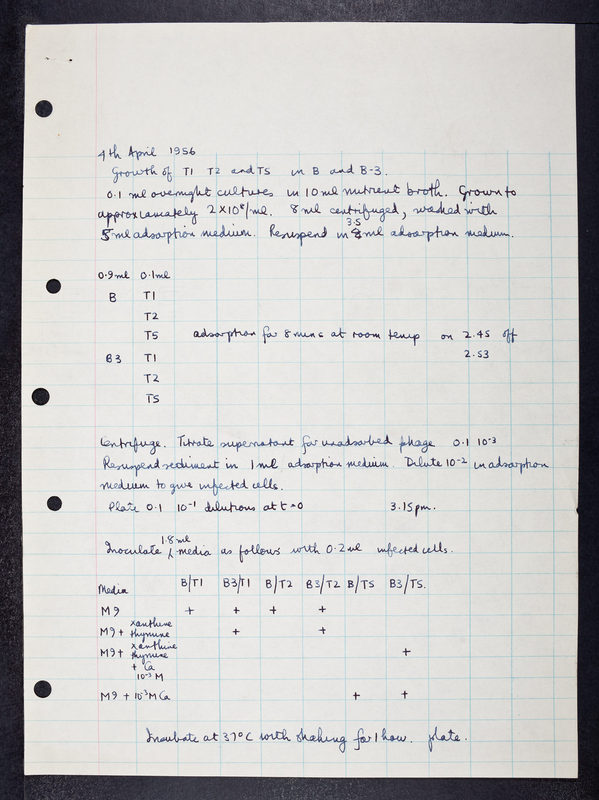 4th April 1956
Growth of T1 T2 and T5 in B and B-3.
0.1 ml overnight cultures in 10 ml nutrient broth. Grown to
approximately 2 x 10⁸/ml. 8 ml centrifuged, washed with
5 ml adsorption medium. Resuspend in 3.5 ml adsorption medium.
0.9ml 0.1ml
B T1
T2
T5 adsorption for 8 mins at room temp on 2.45 off
B3 T1 2.53
T2
T5
Centrifuge. Titrate supernatant for unadsorbed phage 0.1 10⁻³
Resuspend sediment in 1 ml adsorption medium. Dilute 10⁻² in adsorption
medium to give infected cells.
Plate 0.1 10⁻¹ dilutions at t=0 3.15pm.
Inoculate 1.8 ml media as follows with 0.2 ml infected cells.
Media B/T1 B3/T1 B/T2 B3/T2 B/T5 B3/T5.
M9 + + + +
M9 + xanthine thymine + +
M9 + xanthine thymine +
+ Ca
10⁻³ M
M9 + 10⁻³ M Ca + +
Incubate at 37°C with shaking for 1 hour. plate.